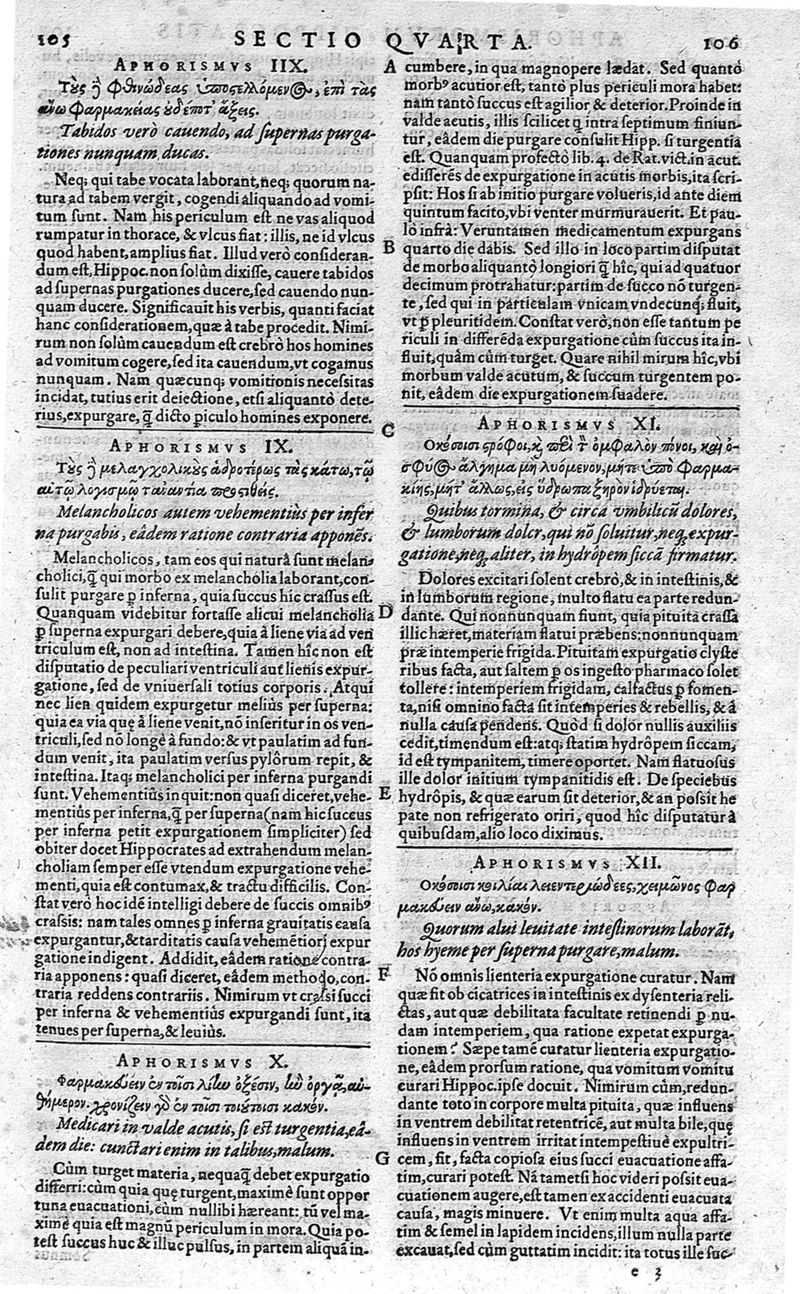 105
SECTIO QVARTA.
106
APHORISMVS IIX.
Τοὺς ἢ φθινώδεας ὑποστελλόμενος, ἐπὶ τὰς
ἄνω φαρμακείας οὐδέποτ' ἄξεις.
Tabidos verò cauendo, ad supernas purga-
tiones nunquam ducas.
Neq; qui tabe vocata laborant, neq; quorum na-
tura ad tabem vergit, cogendi aliquando ad vomi-
tum sunt. Nam his periculum est ne vas aliquod
rumpatur in thorace, & vlcus fiat: illis, ne id vlcus
quod habent, amplius fiat. Illud verò consideran-
dum est, Hippoc. non solùm dixisse, cauere tabidos
ad supernas purgationes ducere, sed cauendo nun-
quam ducere. Significauit his verbis, quanti faciat
hanc considerationem, quæ à tabe procedit. Nimi-
rum non solùm cauendum est crebrò hos homines
ad vomitum cogere, sed ita cauendum, vt cogamus
nunquam. Nam quæcunq; vomitionis necessitas
incidat, tutius erit deiectione, etsi aliquantò dete-
rius, expurgare, q̃ dicto ꝑiculo homines exponere.
APHORISMVS IX.
Τοὺς ἢ μελαγχολικοὺς ἁδροτέρως τὰς κάτω, τῷ
αὐτῷ λογισμῷ τἀναντία προστιθείς.
Melancholicos autem vehementiùs per infer
na purgabis, eâdem ratione contraria apponẽs.
Melancholicos, tam eos qui naturâ sunt melan-
cholici, q̃ qui morbo ex melancholia laborant, con-
sulit purgare ꝑ inferna, quia succus hic crassus est.
Quanquam videbitur fortasse alicui melancholia
ꝑ superna expurgari debere, quia à liene via ad ven
triculum est, non ad intestina. Tamen hîc non est
disputatio de peculiari ventriculi aut lienis expur-
gatione, sed de vniuersali totius corporis. Atqui
nec lien quidem expurgetur meliùs per superna:
quia ea via quę à liene venit, nõ inseritur in os ven-
triculi, sed nõ longè à fundo: & vt paulatim ad fun-
dum venit, ita paulatim versus pylôrum repit, &
intestina. Itaq; melancholici per inferna purgandi
sunt. Vehementiùs inquit: non quasi diceret, vehe-
mentiùs per inferna, q̃ per superna (nam hic succus
per inferna petit expurgationem simpliciter) sed
obiter docet Hippocrates ad extrahendum melan-
choliam semper esse vtendum expurgatione vehe-
menti, quia est contumax, & tractu difficilis. Con-
stat verò hoc idẽ intelligi debere de succis omnibꝰ
crassis: nam tales omnes ꝑ inferna grauitatis causa
expurgantur, & tarditatis causa vehemẽtiori expur
gatione indigent. Addidit, eâdem ratione contra-
ria apponens: quasi diceret, eâdem methodo, con-
traria reddens contrariis. Nimirum vt crassi succi
per inferna & vehementiùs expurgandi sunt, ita
tenues per superna, & leuiùs.
APHORISMVS X.
Φαρμακεύειν ἐν τοῖσι λίην ὀξέσιν, ἢν ὀργᾷ, αὐ-
θήμερον. χρονίζειν γὰρ ἐν τοῖσι τοιούτοισι κακόν.
Medicari in valde acutis, si est turgentia, eâ-
dem die: cunctari enim in talibus, malum.
Cùm turget materia, nequaq̃ debet expurgatio
differri: cùm quia quę turgent, maximè sunt oppor
tuna euacuationi, cùm nullibi hæreant: tũ vel ma-
ximè quia est magnũ periculum in mora. Quia po-
test succus huc & illuc pulsus, in partem aliquã in-
A
cumbere, in qua magnopere lædat. Sed quantò
morbꝰ acutior est, tantò plus periculi mora habet:
nam tantò succus est agilior & deterior. Proinde in
valde acutis, illis scilicet q̃ intra septimum finiun-
tur, eâdem die purgare consulit Hipp. si turgentia
est. Quanquam profectò lib. 4. de Rat. vict. in acut.
edisserẽs de expurgatione in acutis morbis, ita scri-
psit: Hos si ab initio purgare volueris, id ante diem
quintum facito, vbi venter murmurauerit. Et pau-
lò infrà: Veruntamen medicamentum expurgans
B
quarto die dabis. Sed illo in loco partim disputat
de morbo aliquantò longiori q̃ hîc, qui ad quatuor
decimum protrahatur: partim de succo nõ turgen-
te, sed qui in particulam vnicam vndecunq; fluit,
vt ꝑ pleuritidem. Constat verò, non esse tantum pe
riculi in differẽda expurgatione cùm succus ita in-
fluit, quàm cùm turget. Quare nihil mirum hîc, vbi
morbum valde acutum, & succum turgentem po-
nit, eâdem die expurgationem suadere.
C
APHORISMVS XI.
Ὁκόσοισι στρόφοι, καὶ περὶ τὸν ὀμφαλὸν πόνοι, καὶ ὀ-
σφύος ἄλγημα μὴ λυόμενον, μήτε ὑπὸ φαρμα-
κίης, μήτ' ἄλλως, εἰς ὕδρωπα ξηρὸν ἱδρύεται.
Quibus tormina, & circa vmbilicũ dolores,
& lumborum dolor, qui nõ soluitur, neq, expur-
gatione, neq, aliter, in hydrôpem siccũ firmatur.
Dolores excitari solent crebrò, & in intestinis, &
in lumborum regione, multo flatu ea parte redun-
D
dante. Qui nonnunquam fiunt, quia pituita crassa
illic hæret, materiam flatui præbens: nonnunquam
præ intemperie frigida. Pituitam expurgatio clyste
ribus facta, aut saltem ꝑ os ingesto pharmaco solet
tollere: intemperiem frigidam, calfactus ꝑ fomen-
ta, nisi omnino facta sit intemperies & rebellis, & à
nulla causa pendens. Quòd si dolor nullis auxiliis
cedit, timendum est: atq; statim hydrôpem siccam,
id est tympanitem, timere oportet. Nam flatuosus
ille dolor initium tympanitidis est. De speciebus
E
hydrôpis, & quæ earum sit deterior, & an possit he
pate non refrigerato oriri, quod hîc disputatur à
quibusdam, alio loco diximus.
APHORISMVS XII.
Ὁκόσοισι κοιλίαι λειεντεριώδεες, χειμῶνος φαρ
μακεύειν ἄνω, κακόν.
Quorum alui leuitate intestinorum laborãt,
hos hyeme per superna purgare, malum.
F
Nõ omnis lienteria expurgatione curatur. Nam
quæ fit ob cicatrices in intestinis ex dysenteria reli-
ctas, aut quæ debilitata facultate retinendi ꝑ nu-
dam intemperiem, qua ratione expetat expurga-
tionem? Sæpe tamẽ curatur lienteria expurgatio-
ne, eâdem prorsum ratione, qua vomitum vomitu
curari Hippoc. ipse docuit. Nimirum cùm, redun-
dante toto in corpore multa pituita, quæ influens
in ventrem debilitat retentricẽ, aut multa bile, quę
influens in ventrem irritat intempestiuè expultri-
G
cem, fit, facta copiosa eius succi euacuatione affa-
tim, curari potest. Nã tametsi hoc videri possit eua-
cuationem augere, est tamen ex accidenti euacuata
causa, magis minuere. Vt enim multa aqua affa-
tim & semel in lapidem incidens, illum nulla parte
excauat, sed cùm guttatim incidit: ita totus ille suc-
e 3